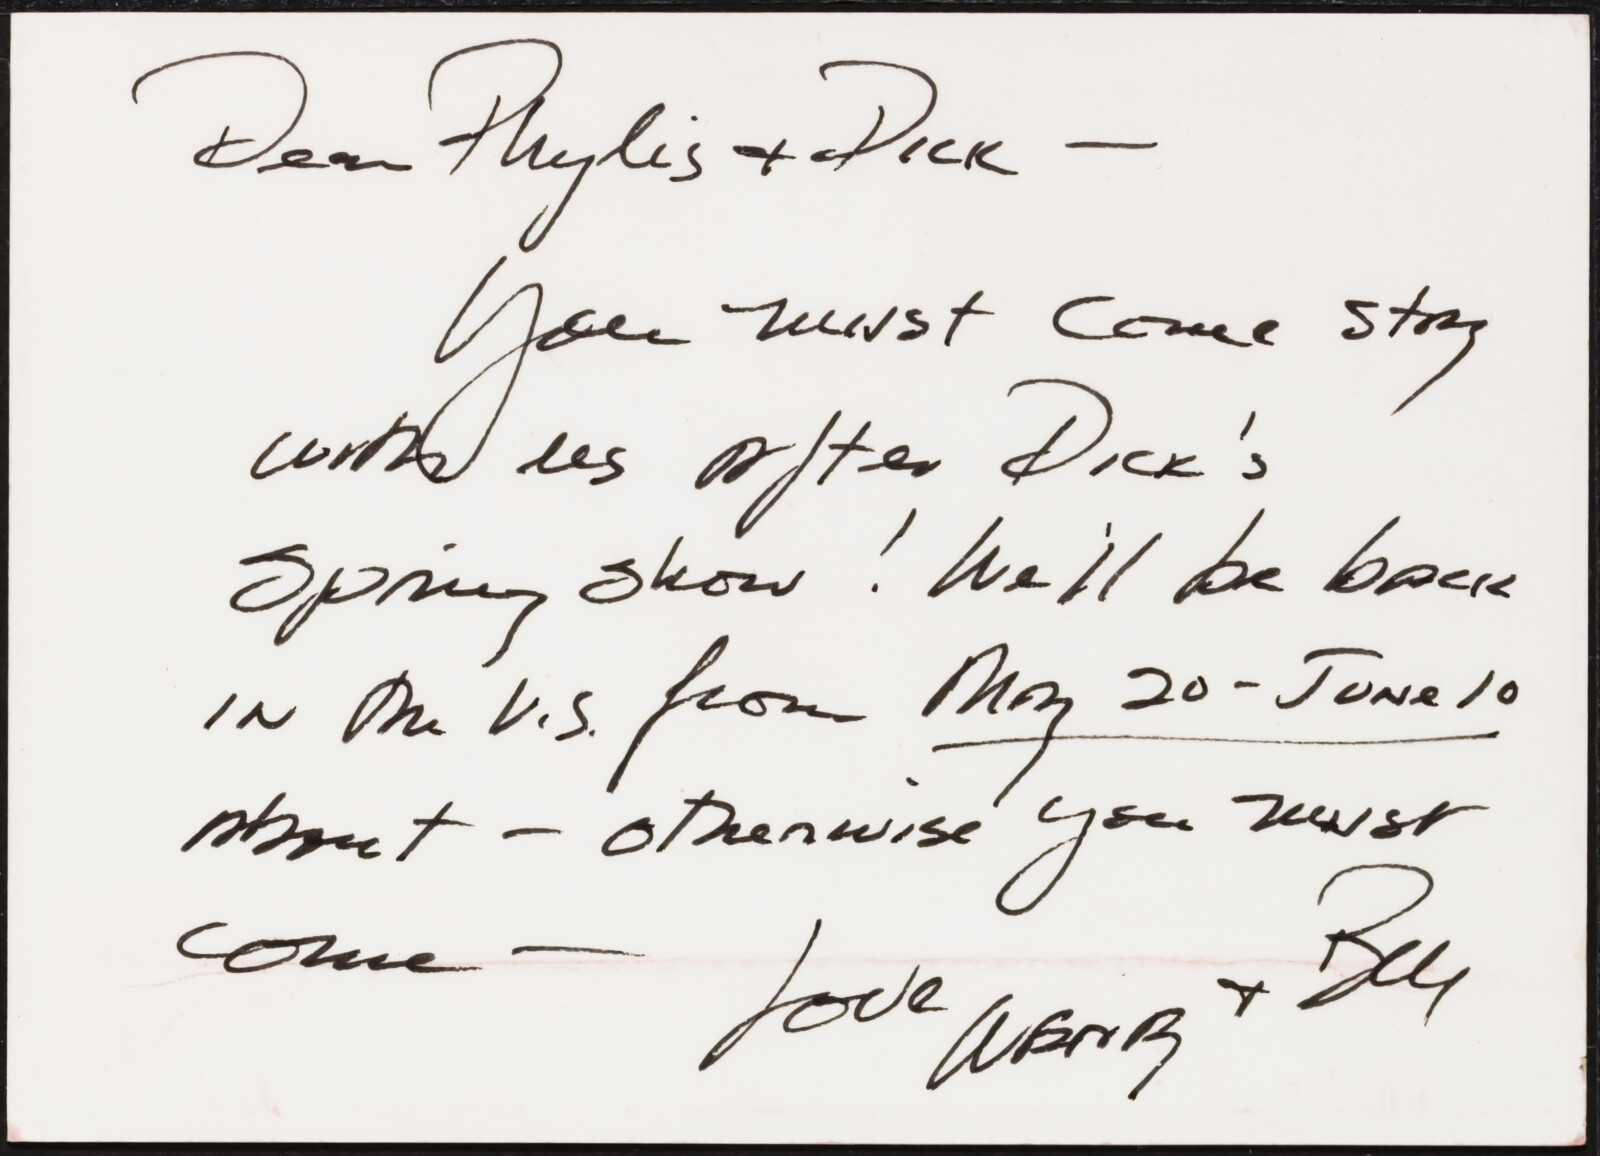 Dear Phylis + Dick —
You must come stay
with us after Dick's
Spring show! We'll be back
in the U.S. from May 20 - June 10
about — otherwise you must
come —
Love
Wendy + Bill